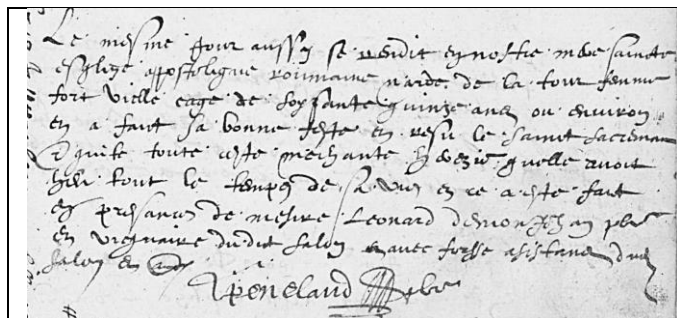 Le mesme jour aussy se rendit en nostre mere saincte
esglize apostolique roumaine narde de la tour femme
fort vielle eage de soyxante quinze ans ou environ
en a faut sa bonne feste en resu le sainct sacremen
& quite toute ceste meschante herezie quelle avoit
heu tout le temps de sa vie en ce a este faict
en presance de mesire Leonard demonjehan pbre
en vicquaire du dit salon en avec forsse asistans du
salon en
peneland pbre